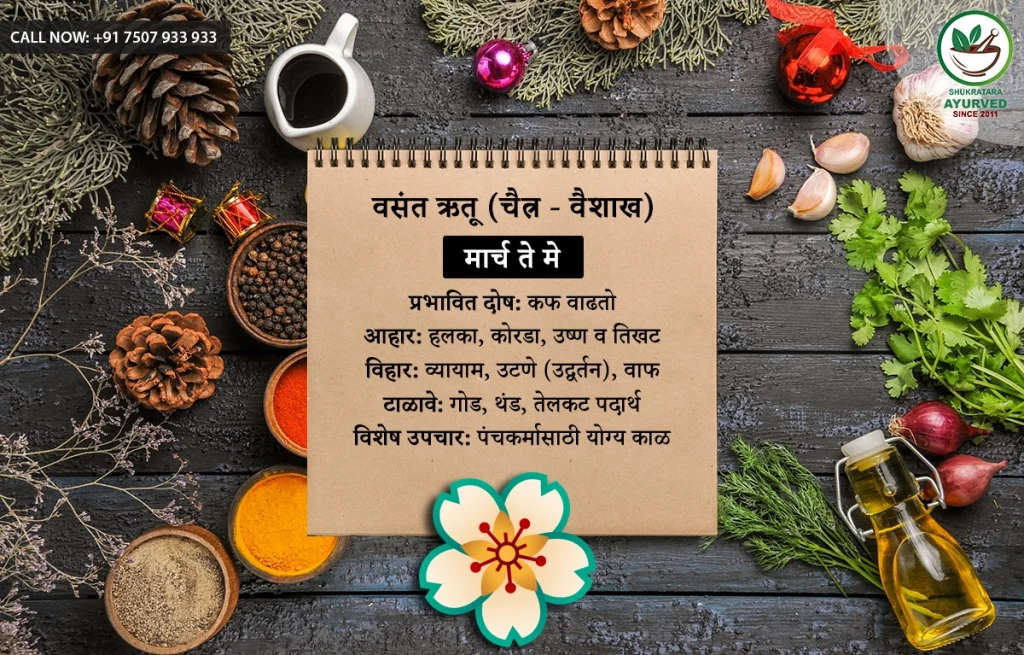 CALL NOW: +91 7507 933 933
SHUKRATARA
AYURVED
SINCE 2011
वसंत ऋतू (चैत्र - वैशाख)
मार्च ते मे
प्रभावित दोष: कफ वाढतो
आहार: हलका, कोरडा, उष्ण व तिखट
विहार: व्यायाम, उटणे (उद्वर्तन), वाफ
टाळावे: गोड, थंड, तेलकट पदार्थ
विशेष उपचार: पंचकर्मासाठी योग्य काळ